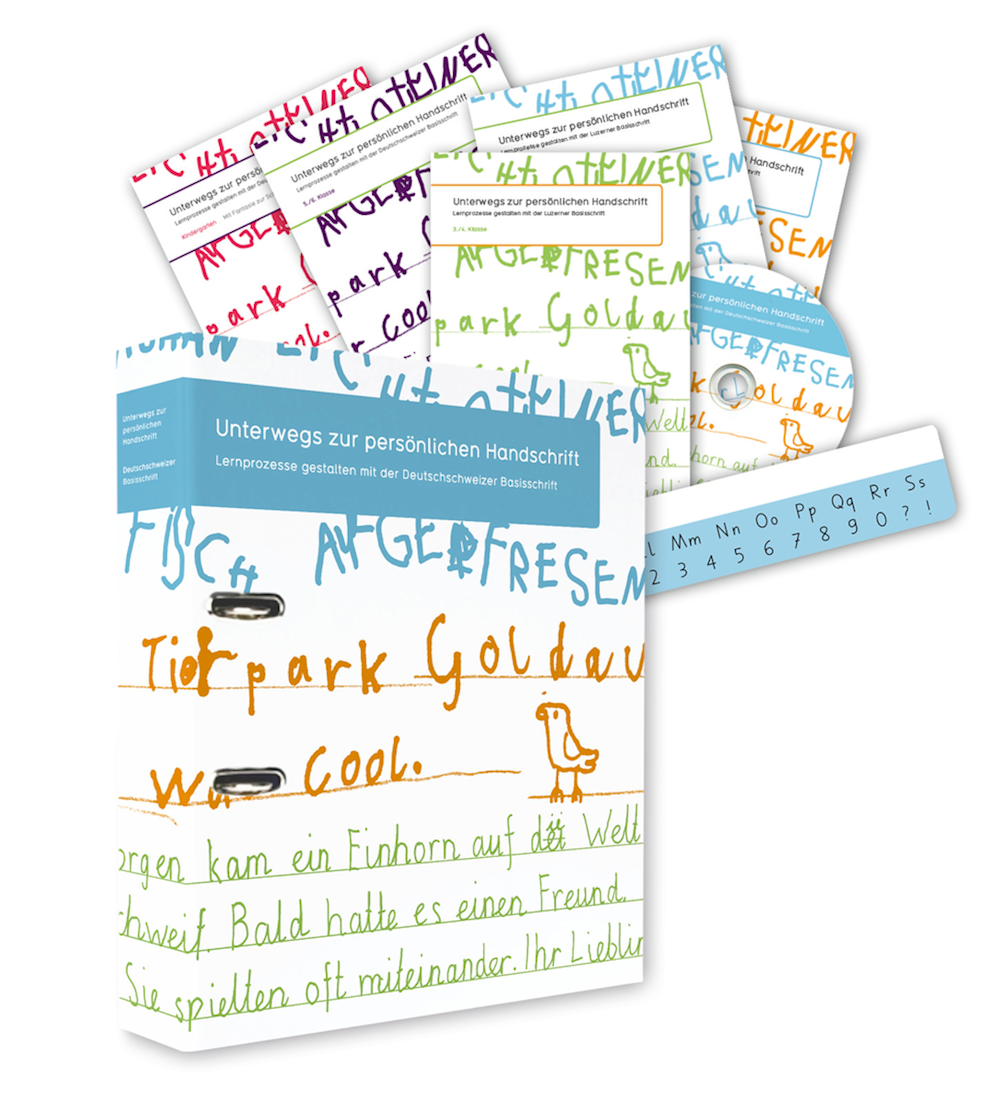 Unterwegs zur persö
Lernprozesse gestalten mit der De
Kindergarten Mit Fantasie zur Sc
park
ool.
Unterwegs zur persönlichen Handschrift
Lernprozesse gestalten mit der Deutschschweizer Basisschrift
5./6. Klasse
park
r cool
Unterwegs zur persönlichen Handschrift
Lernprozesse gestalten mit der Luzerner Basisschrift
Unterwegs zur persönlichen Handschrift
Lernprozesse gestalten mit der Luzerner Basisschrift
3./4. Klasse
AUFGEPFRESEN
park Goldau
Welt
nd.
Handschrift
ESEN
zur persönlichen Handschrift
en mit der Deutschschweizer Basisschrift
AUFGEPFRESEN
Goldau
horn auf
l Mm Nn Oo Pp Qq Rr Ss
2 3 4 5 6 7 8 9 0 ? !
Unterwegs zur
persönlichen
Handschrift
Deutschschweizer
Basisschrift
Unterwegs zur persönlichen Handschrift
Lernprozesse gestalten mit der Deutschschweizer Basisschrift
FISCH AUFGEPFRESEN
Tierpark Goldau
cool.
orgen kam ein Einhorn auf die Welt
hweif. Bald hatte es einen Freund.
Sie spielten oft miteinander. Ihr Lieblin